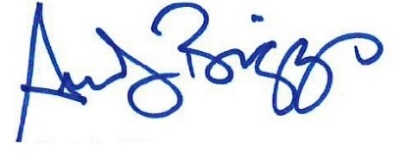 Andy Briggs